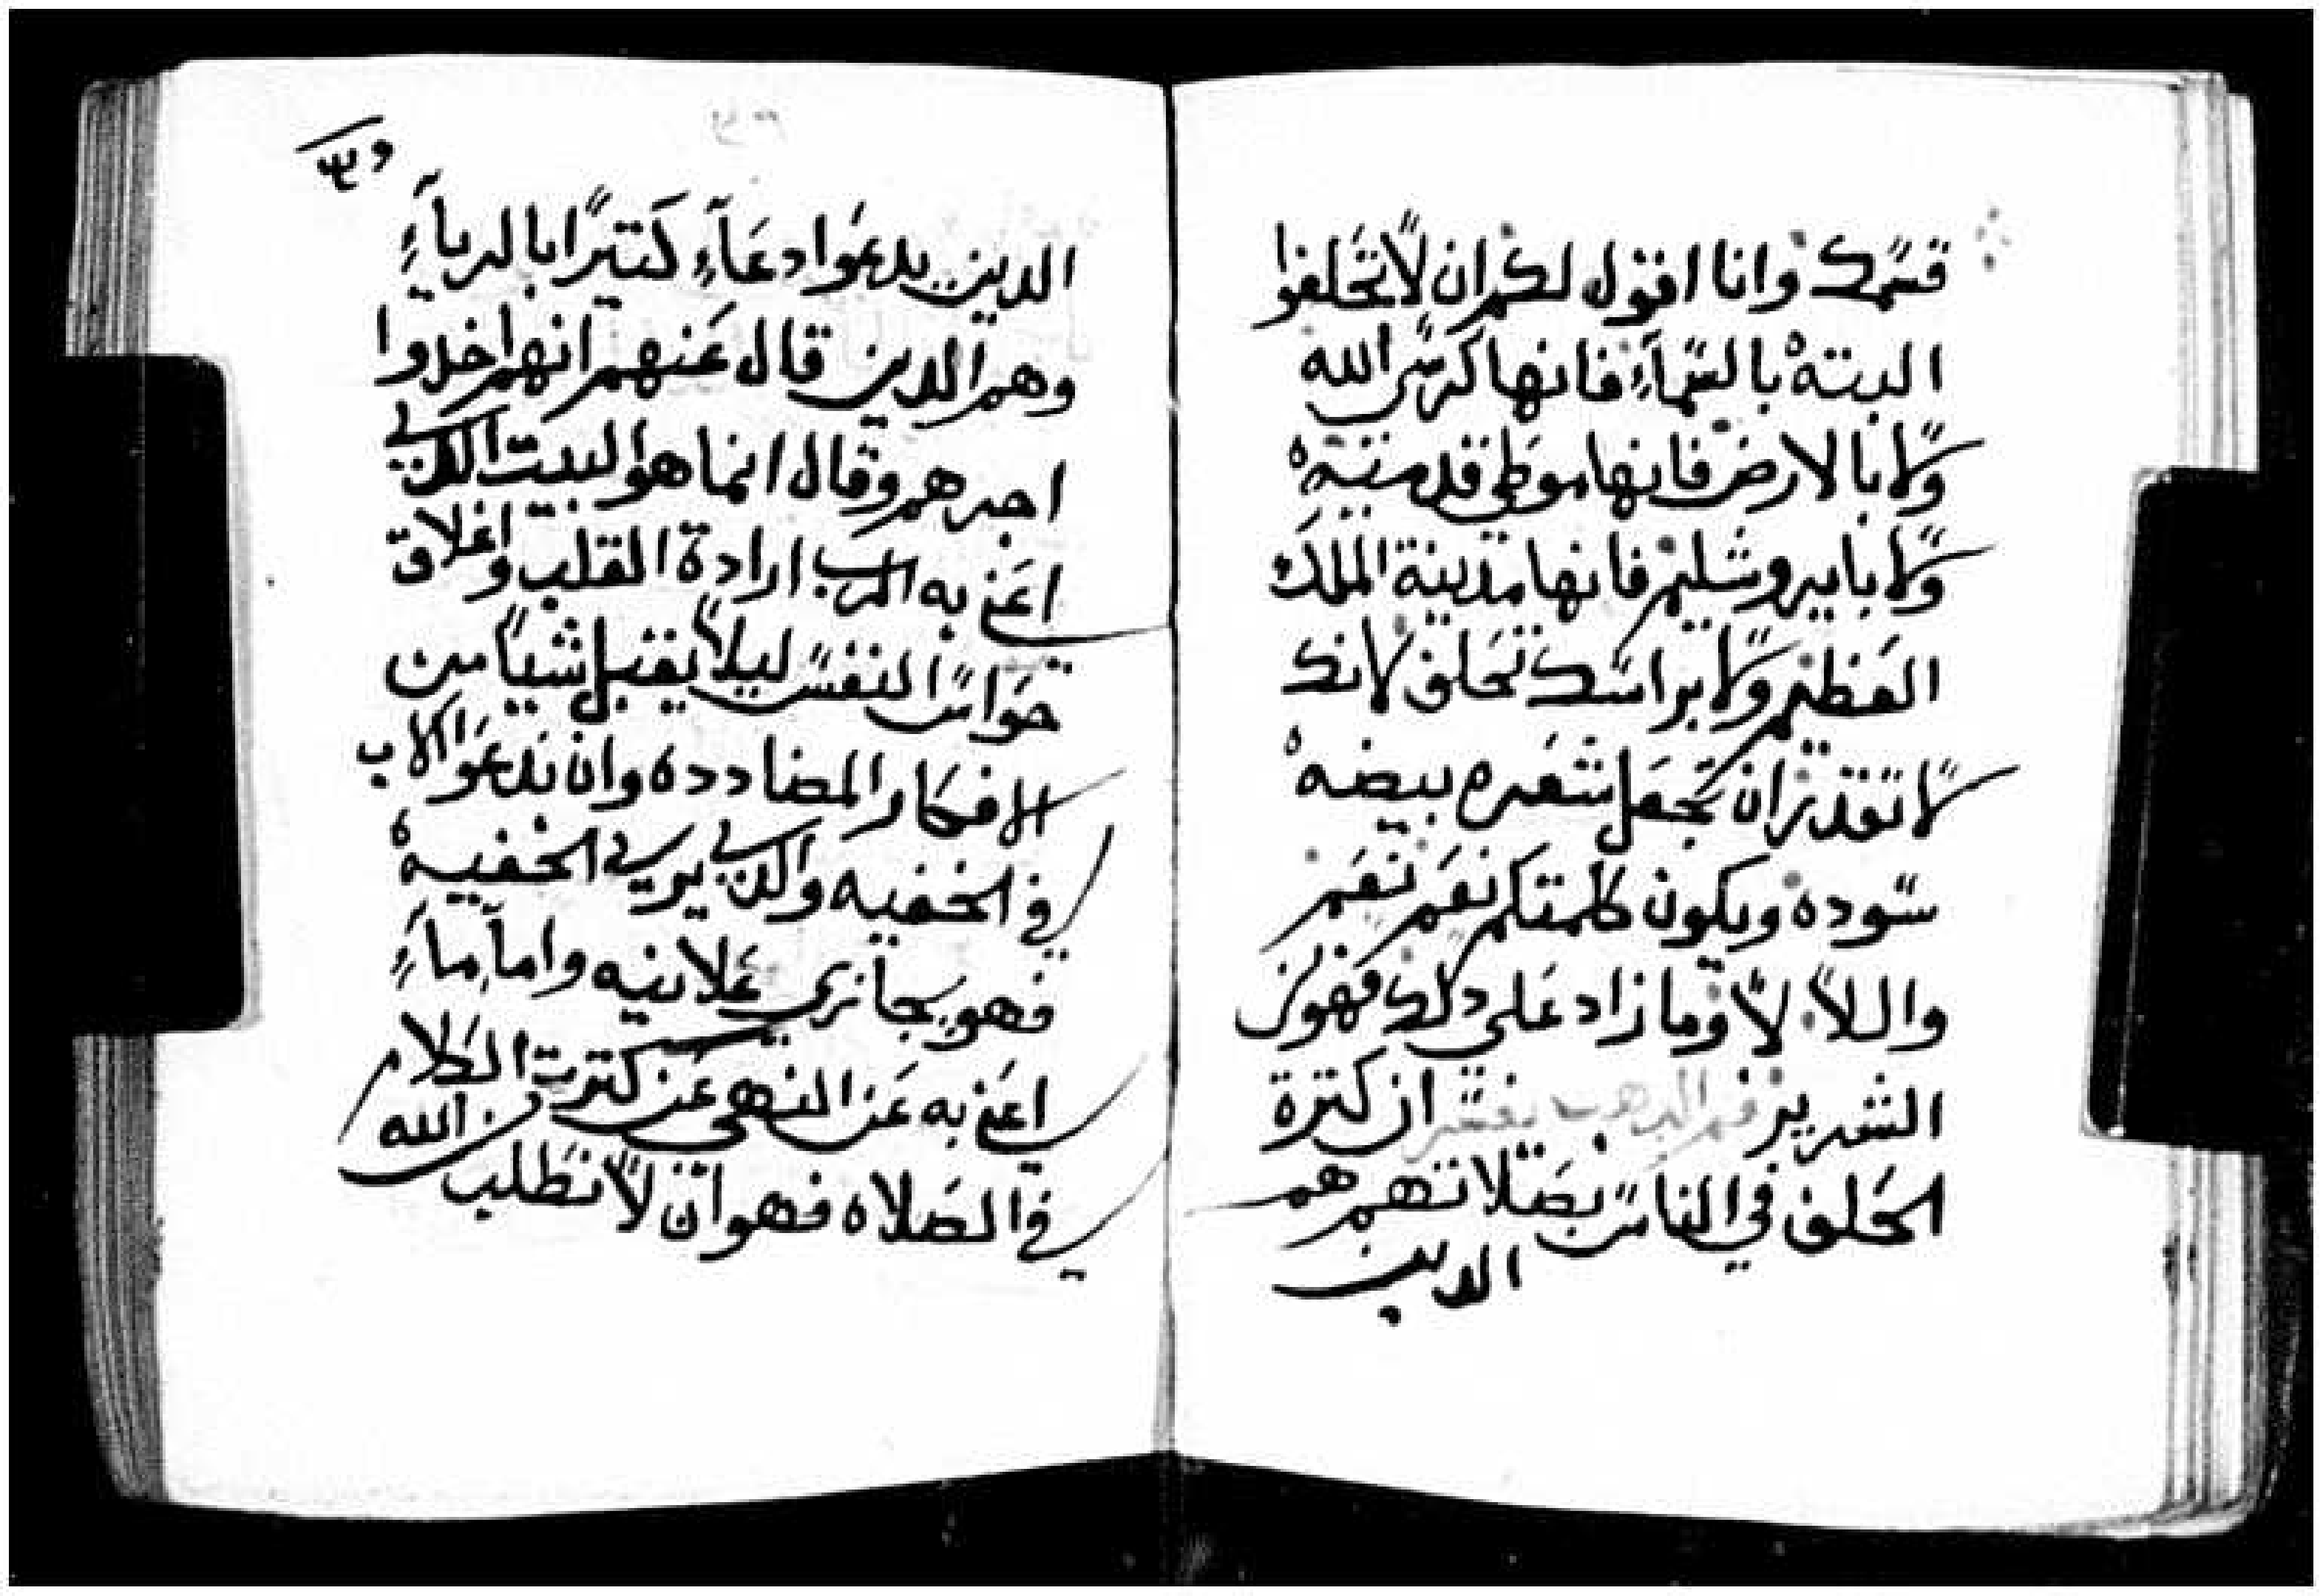 قسمك وانا اقول لكم ان لا تحلفوا
البته بالسمآءِ فانها كرسي الله
ولا بالارض فانها موطي قدميه
ولا بايروشليم فانها مدينة الملك
العظيم ولا براسك تحلف لانك
لا تقدر ان تجعل شعره بيضه
سوده ويكون كلمتكم نعم نعم
واللا لا وما زاد علي دلك فهو من
الشرير فم الدهب يفسر ان كترة
الحلف في الناس بصلاتهم هم
الدين
الدين يدعوا دعآءِ كتيرًا بالريآءِ
وهم الدين قال عنهم انهم اخدوا
اجرهم وقال انما هو البيت الدي
اعني به الرب ارادة القلب واغلاق
حواس النفس ليلا يقبل شيا من
الافكار المضادده وان ندعوا الاب
في الخفيه والدي يري في الخفيه
فهو يجازي علانيه واما ماءِ
اعني به عن النهي عن كترت الكلام
في الصلاه فهو ان لا نطلب من الله